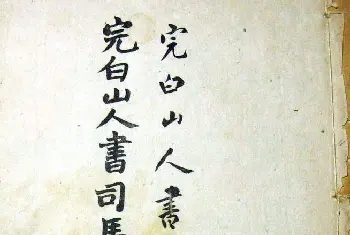 完白山人書
完白山人書司馬